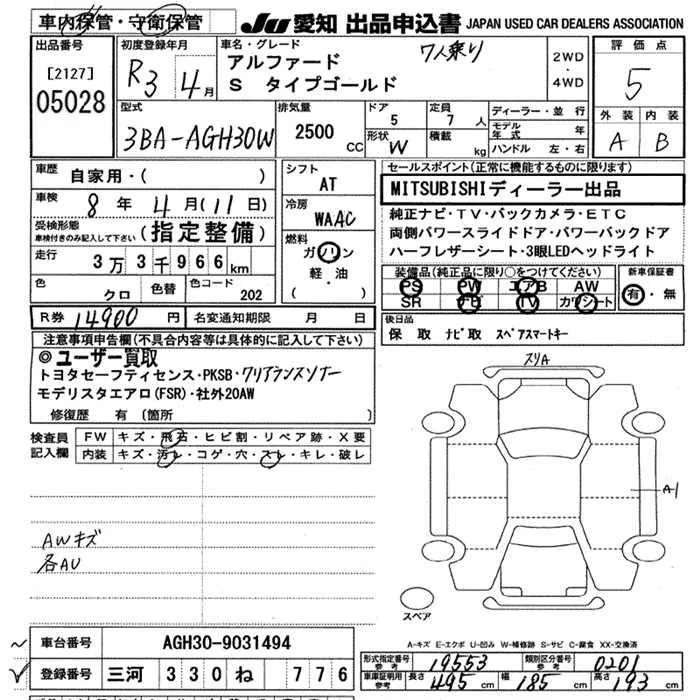 車内保管・守衛保管
JU 愛知 出品申込書 JAPAN USED CAR DEALERS ASSOCIATION
出品番号
[2127]
05028
初度登録年月
R3 4月
車名・グレード
7人乗り
アルファード
S タイプゴールド
2WD
・
4WD
評価点
5
外装 内装
A B
型式
3BA-AGH30W
排気量
2500 CC
ドア
5
定員
7人
形状
W
積載
kg
ディーラー・並行
モデル年式 年
ハンドル 左・右
車歴
自家用・( )
車検
8年 4月(11日)
受検形態
車検付きのみ記入して下さい
(指定整備)
走行
3万3千966km
色
クロ
色替
色コード
202
シフト
AT
冷房
WAAC
燃料
ガソリン
軽・油
( )
セールスポイント(正常に機能するものに限ります)
MITSUBISHIディーラー出品
純正ナビ・TV・バックカメラ・ETC
両側パワースライドドア・パワーバックドア
ハーフレザーシート・3眼LEDヘッドライト
装備品(純正品に限り○をつけてください)
PS PW エアB AW
SR TV カワシート
新車保証書
有・無
R券 14900円
名変通知期限 月 日
後日品
保 取 ナビ取 スペアスマートキー
注意事項申告欄(不具合内容等は具体的に記入して下さい)
◎ユーザー買取
トヨタセーフティセンス・PKSB・クリアランスソナー
モデリスタエアロ(FSR)・社外20AW
修復歴 有 (箇所 )
検査員記入欄
FW キズ・飛石・ヒビ割・リペア跡・X要
内装 キズ・汚レ・コゲ・穴・スレ・キレ・破レ
AWキズ
各AU
スリA
A1
スペア
A-キズ E-エクボ U-凹み W-補修跡 S-サビ C-腐食 XX-交換済
車台番号 AGH30-9031494
登録番号 三河 330 ね 776
形式指定番号 参考 19553
類別区分番号 参考 0201
車庫証明用 参考 長さ 495cm 幅 185cm 高さ 193cm